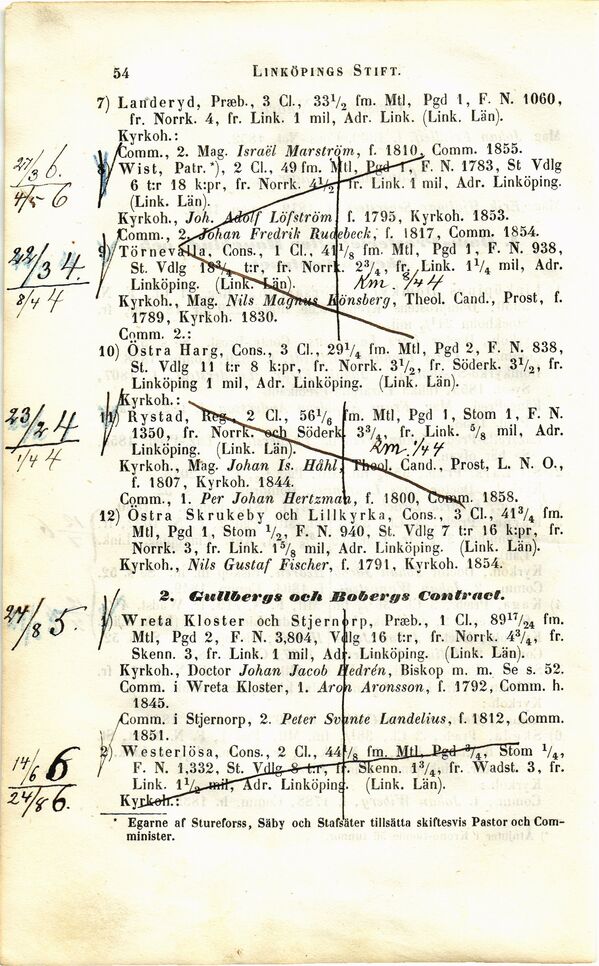 54 LINKÖPINGS STIFT.
7) Landeryd, Præb., 3 Cl., 33 1/2 fm. Mtl, Pgd 1, F. N. 1060,
fr. Norrk. 4, fr. Link. 1 mil, Adr. Link. (Link. Län).
Kyrkoh.:
Comm., 2. Mag. Israël Marström, f. 1810, Comm. 1855.
27/3 6.
8) Wist, Patr.*), 2 Cl., 49 fm. Mtl, Pgd 1, F. N. 1783, St Vdlg
4/5 6
6 t:r 18 k:pr, fr. Norrk. 4 1/2, fr. Link. 1 mil, Adr. Linköping.
(Link. Län).
Kyrkoh., Joh. Adolf Löfström, f. 1795, Kyrkoh. 1853.
Comm., 2. Johan Fredrik Rudebeck, f. 1817, Comm. 1854.
22/3 4.
9) Törnevalla, Cons., 1 Cl., 41 1/8 fm. Mtl, Pgd 1, F. N. 938,
St. Vdlg 18 3/4 t:r, fr. Norrk. 2 3/4, fr. Link. 1 1/4 mil, Adr.
8/4 4
Linköping. (Link. Län). Km. 8/4 4
Kyrkoh., Mag. Nils Magnus Könsberg, Theol. Cand., Prost, f.
1789, Kyrkoh. 1830.
Comm. 2.:
10) Östra Harg, Cons., 3 Cl., 29 1/4 fm. Mtl, Pgd 2, F. N. 838,
St. Vdlg 11 t:r 8 k:pr, fr. Norrk. 3 1/2, fr. Söderk. 3 1/2, fr.
Linköping 1 mil, Adr. Linköping. (Link. Län).
Kyrkoh.:
23/2 4
11) Rystad, Reg., 2 Cl., 56 1/6 fm. Mtl, Pgd 1, Stom 1, F. N.
1350, fr. Norrk. och Söderk. 3 3/4, fr. Link. 5/8 mil, Adr.
1/4 4
Linköping. (Link. Län). Km. 1/4 4
Kyrkoh., Mag. Johan Is. Håhl, Theol. Cand., Prost, L. N. O.,
f. 1807, Kyrkoh. 1844.
Comm., 1. Per Johan Hertzman, f. 1800, Comm. 1858.
12) Östra Skrukeby och Lillkyrka, Cons., 3 Cl., 41 3/4 fm.
Mtl, Pgd 1, Stom 1/2, F. N. 940, St. Vdlg 7 t:r 16 k:pr, fr.
Norrk. 3, fr. Link. 1 5/8 mil, Adr. Linköping. (Link. Län).
Kyrkoh., Nils Gustaf Fischer, f. 1791, Kyrkoh. 1854.
2. Gullbergs och Bobergs Contract.
24/8 5.
1) Wreta Kloster och Stjernorp, Præb., 1 Cl., 89 17/24 fm.
Mtl, Pgd 2, F. N. 3,804, Vdlg 16 t:r, fr. Norrk. 4 3/4, fr.
Skenn. 3, fr. Link. 1 mil, Adr. Linköping. (Link. Län).
Kyrkoh., Doctor Johan Jacob Hedrén, Biskop m. m. Se s. 52.
Comm. i Wreta Kloster, 1. Aron Aronsson, f. 1792, Comm. h.
1845.
Comm. i Stjernorp, 2. Peter Svante Landelius, f. 1812, Comm.
1851.
14/6 6
2) Westerlösa, Cons., 2 Cl., 44 1/8 fm. Mtl, Pgd 3/4, Stom 1/4,
F. N. 1,332, St. Vdlg 8 t:r, fr. Skenn. 1 3/4, fr. Wadst. 3, fr.
24/8 6.
Link. 1 1/2 mil, Adr. Linköping. (Link. Län).
Kyrkoh.:
* Egarne af Stureforss, Säby och Stafsäter tillsätta skiftesvis Pastor och Com-
minister.